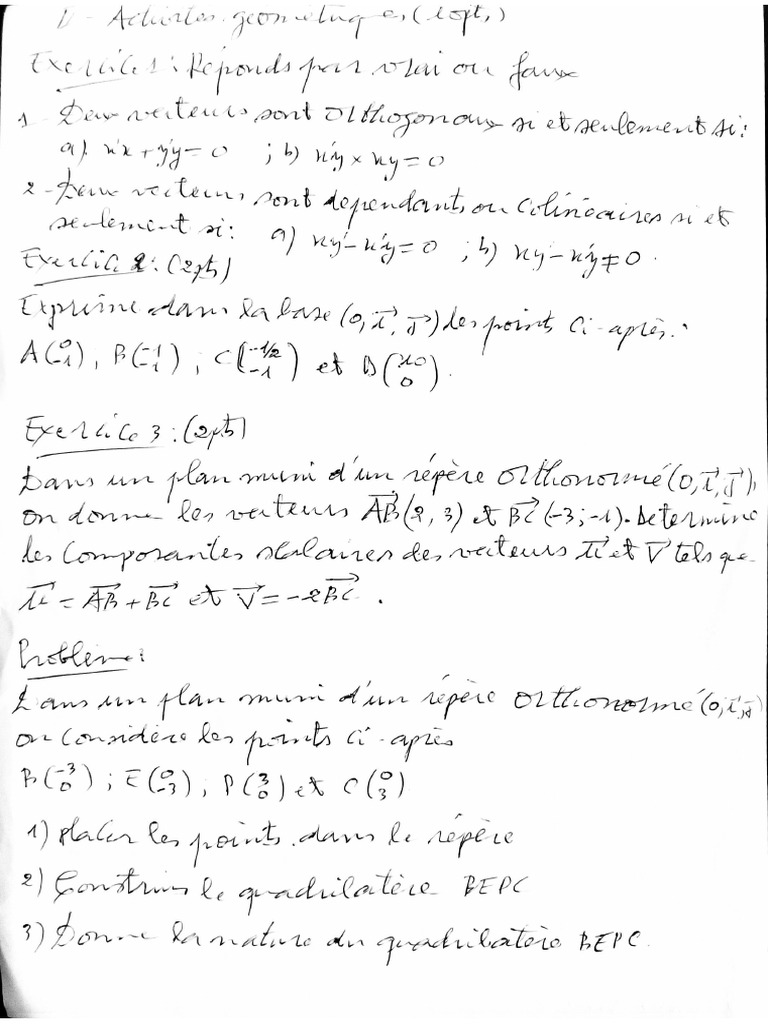 Activités géométriques (10pts)
Exercice 1 : Réponds par vrai ou faux
1- Deux vecteurs sont orthogonaux si et seulement si :
a) x'x + y'y = 0 ; b) x'y × xy = 0
2- Deux vecteurs sont dependants ou colinéaires si et
seulement si : a) xy' - x'y = 0 ; b) xy' - x'y ≠ 0.
Exercice 2 : (2pts)
Exprime dans la base (0, i⃗, j⃗) les points ci-après :
A(0 -1), B(-1 1), C(-1/2 -1) et D(10 0).
Exercice 3 : (2pts)
Dans un plan muni d'un répère orthonormé (0, i⃗, j⃗),
on donne les vecteurs AB⃗(2, 3) et BC⃗(-3; -1). Determine
les composantes scalaires des vecteurs u⃗ et V⃗ tels que
u⃗ = AB⃗ + BC⃗ et V⃗ = -2BC⃗.
Problème :
Dans un plan muni d'un répère orthonormé (0, i⃗, j⃗)
on considère les points ci-après
B(-3 0) ; E(0 -3) ; P(3 0) et C(0 3)
1) Placer les points dans le répère
2) Construis le quadrilatère BEPC
3) Donne la nature du quadrilatère BEPC.